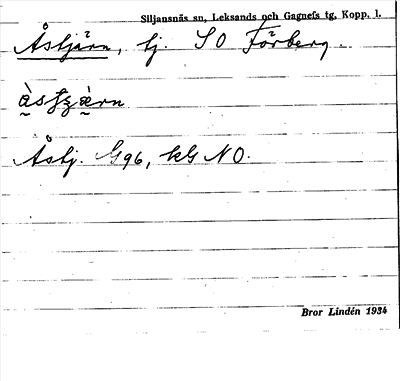 Siljansnäs sn, Leksands och Gagnefs tg, Kopp. l.
Åstjärn, tj. SO Förberg.
Åstj. G96, kG NO.
Bror Lindén 1934